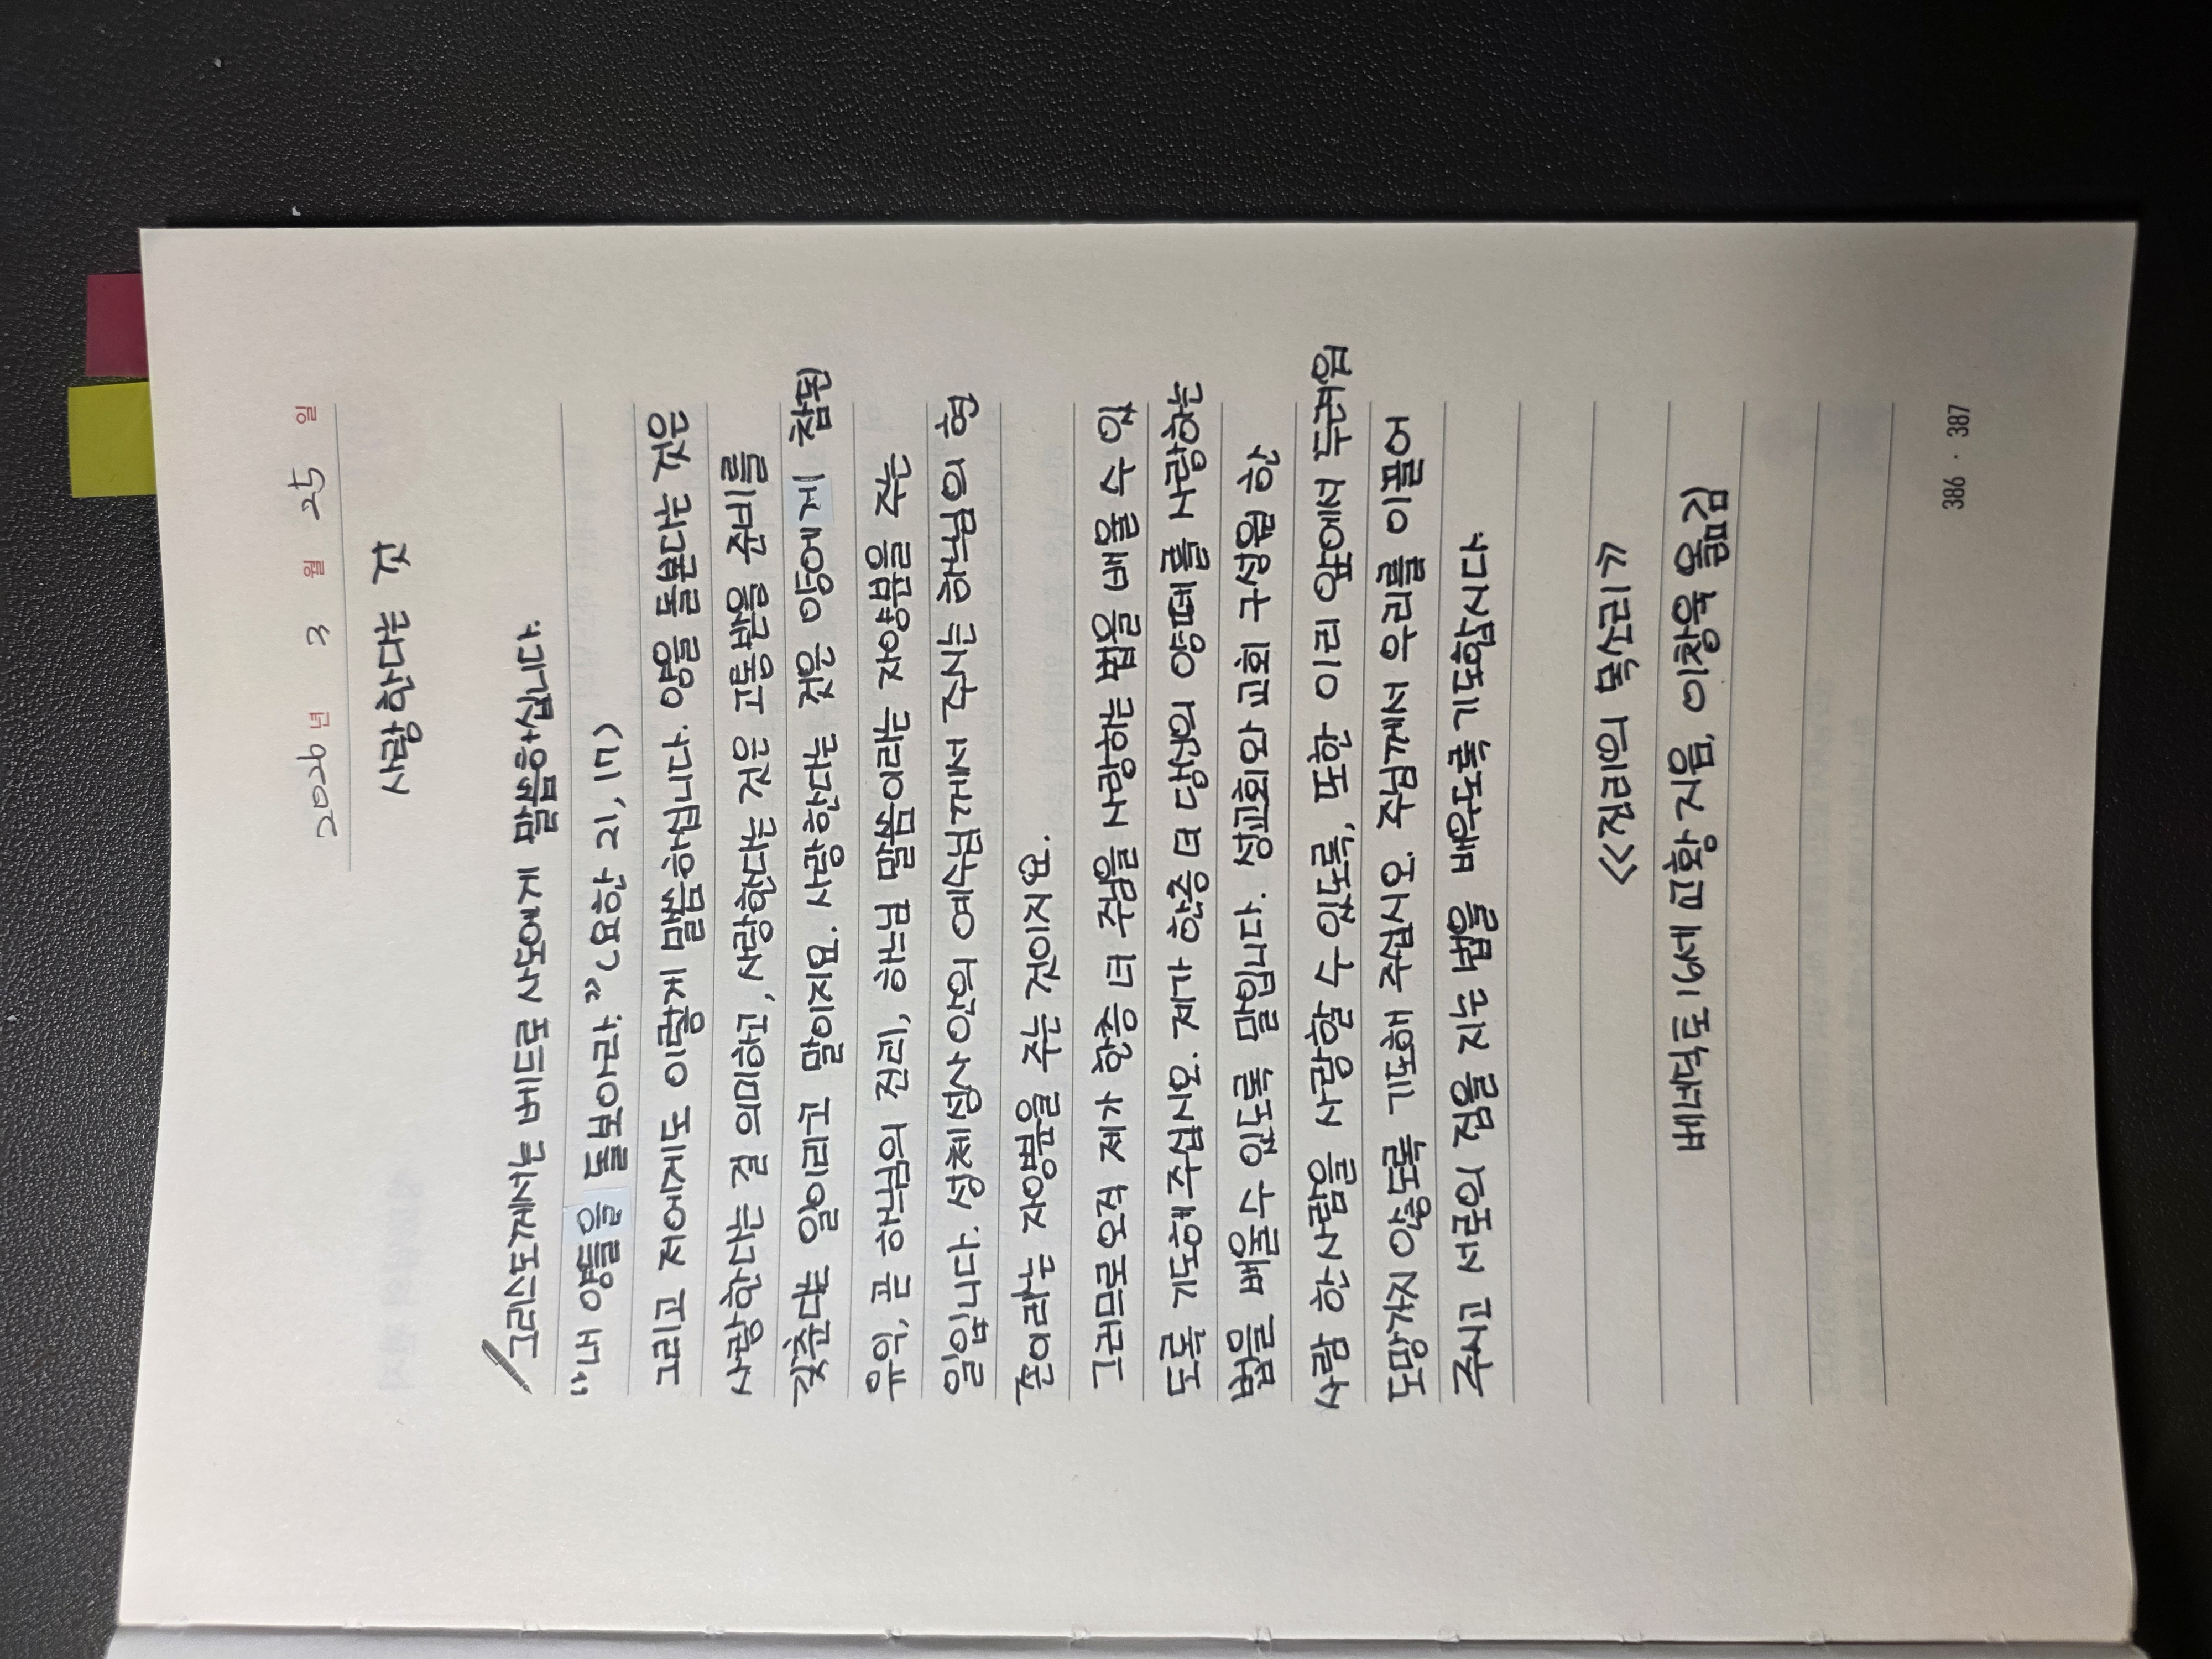 2026년 3월 25일
사랑한다는 것
그리스도께서는 베드로 사도에게 말씀하십니다.
"내 양들을 돌보아라." 《요한 21, 17》
그리고 저에게도 이렇게 말씀하십니다. 양을 돌본다는 것은
사랑한다는 것 의미하고, 사랑한다는 것은 고통받을 준비를
갖춘다 뜻 일이라고 말이지요. 사랑한다는 것은 양에게 참된
유익, 곧 하느님의 진리, 하느님 말씀이라는 자양분을 주는
일입니다. 성체성사 안의 예수님께서 주시는 하느님의 현
존이라는 자양분을 주는 것이지요.
그러므로 오직 제가 한층 더 주님을 사랑하는 법을 배울 수 있
도록 기도해 주십시오. 제가 한층 더 당신의 양떼를 사랑하는
법을 배울 수 있도록 말입니다. 성교회와 교회 구성원 하나,
사람 한사람을 사랑할 수 있도록, 또한 이리 앞에서 두려움에
도망가지 않도록 기도해 주십시오. 주님께서 우리를 이끌어
주시고 서로의 짐을 지는 법을 배우도록 기도합시다.
《진리의 협력자》
베네딕토 16세 교황 지음, 이창욱 옮김
386 · 387